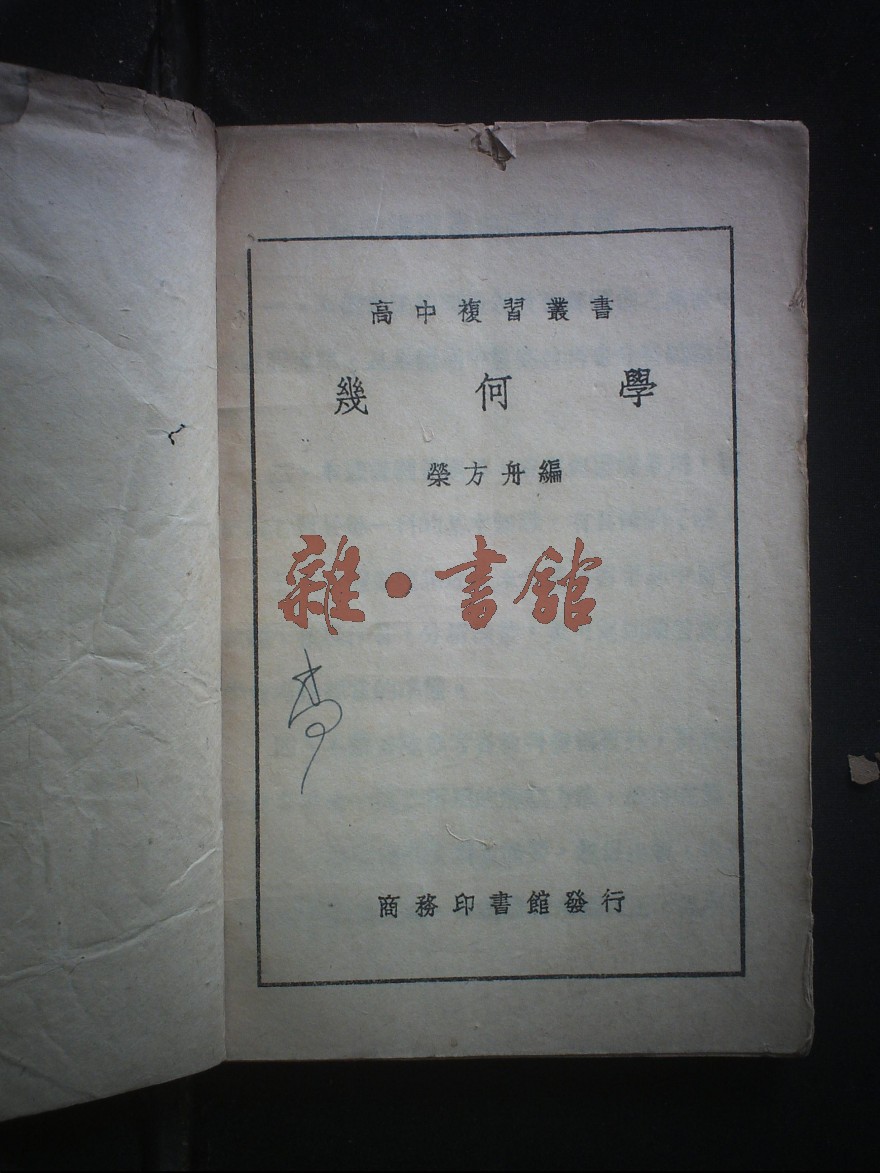 高中複習叢書
幾何學
榮方舟編
雜·書館
商務印書館發行